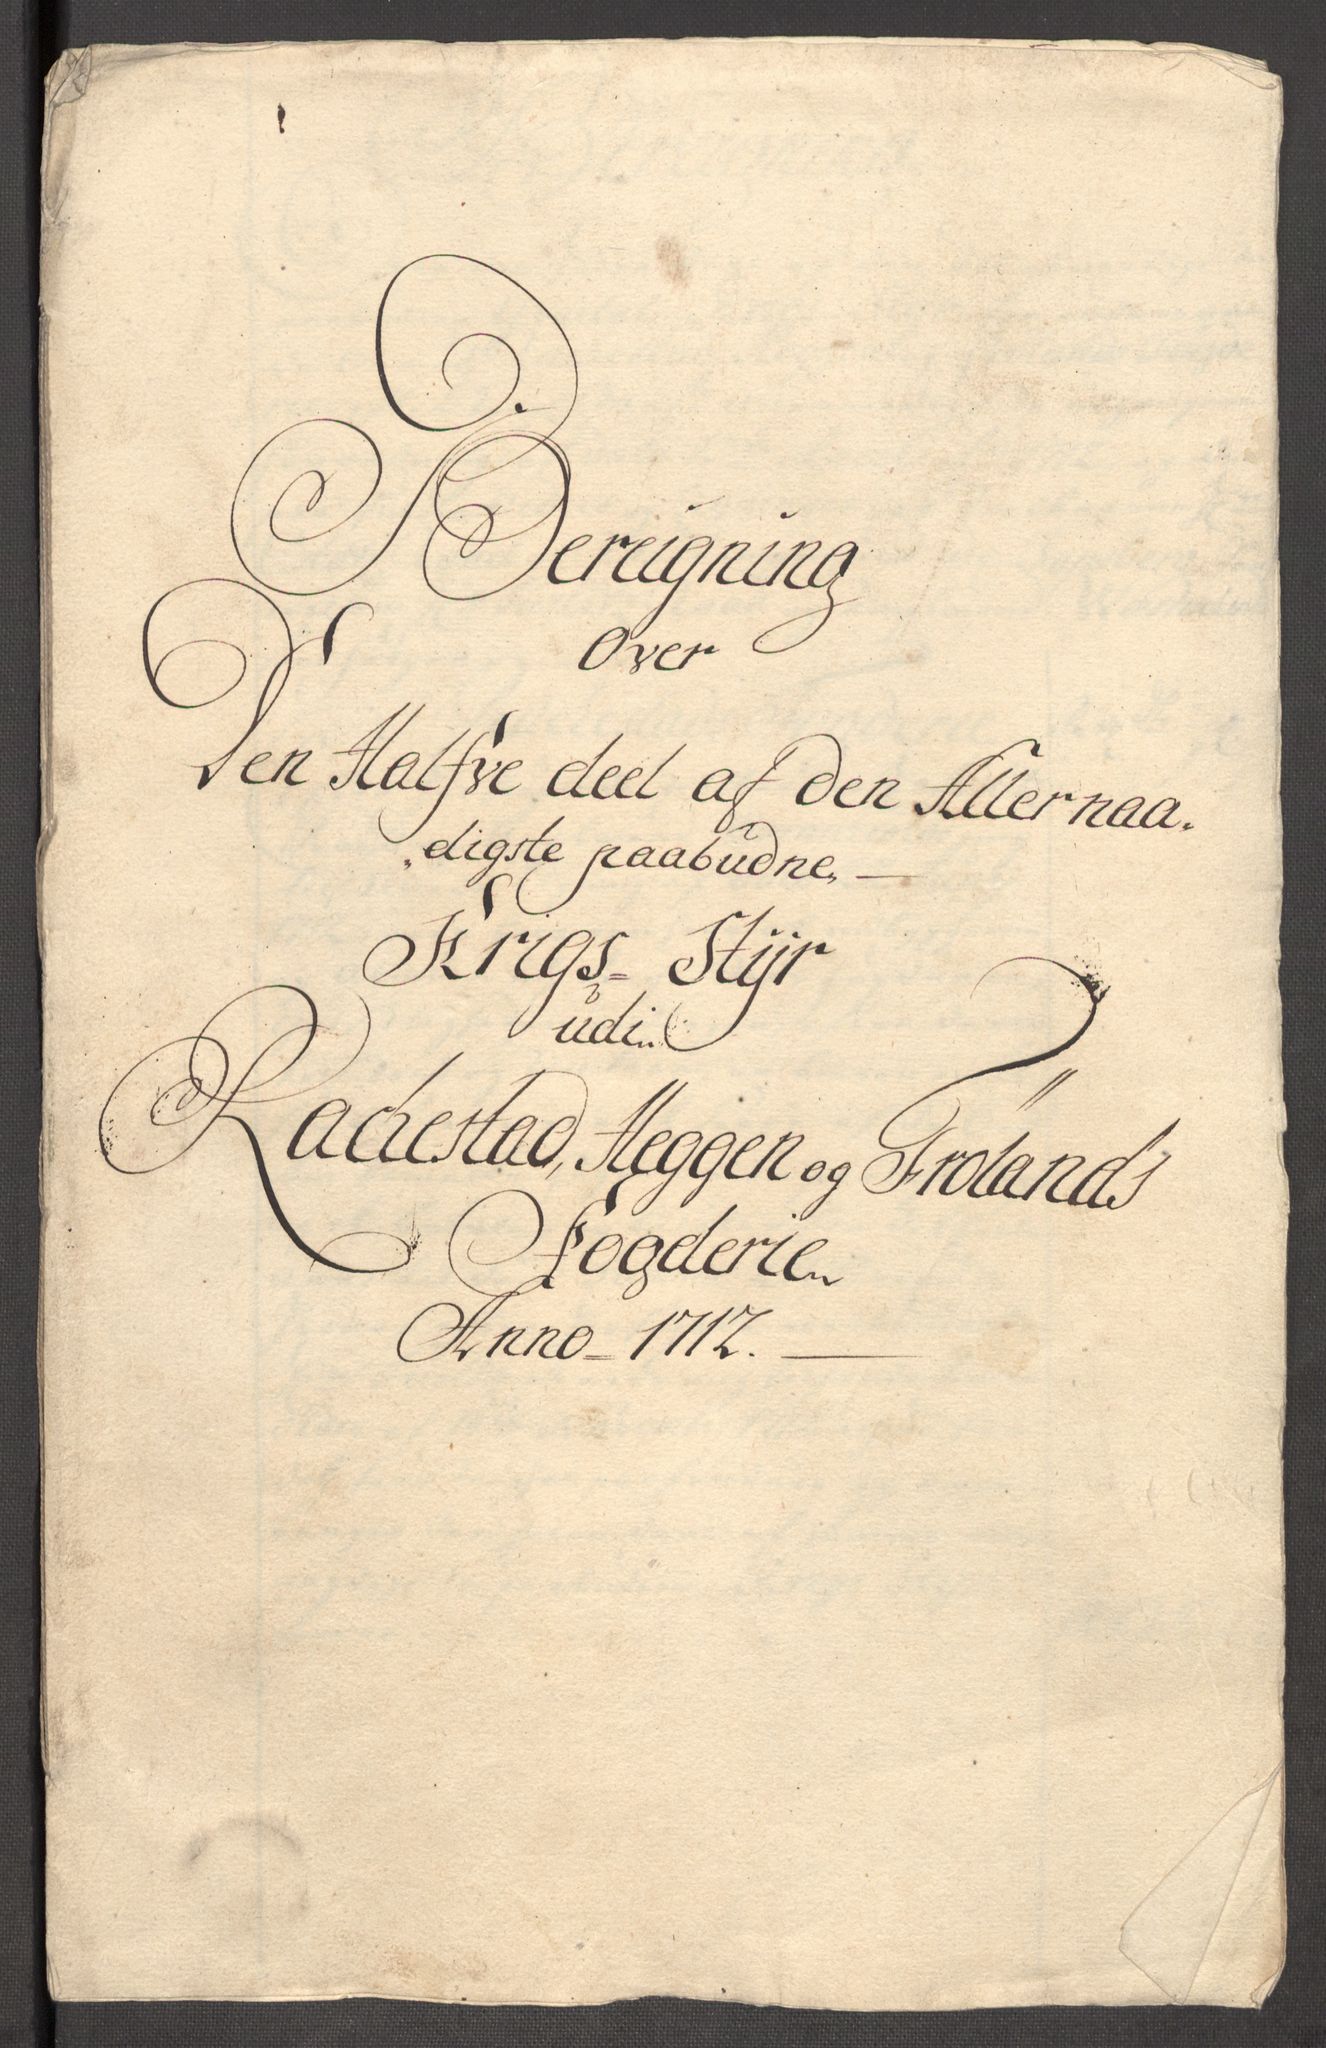 Bereigning
Over
Den Halfve deel af den Allernaa-
digste paabudne
Krigs-Stÿr
udi
Rachestad, Heggen og Frolands
Fogderie
Anno-1712.